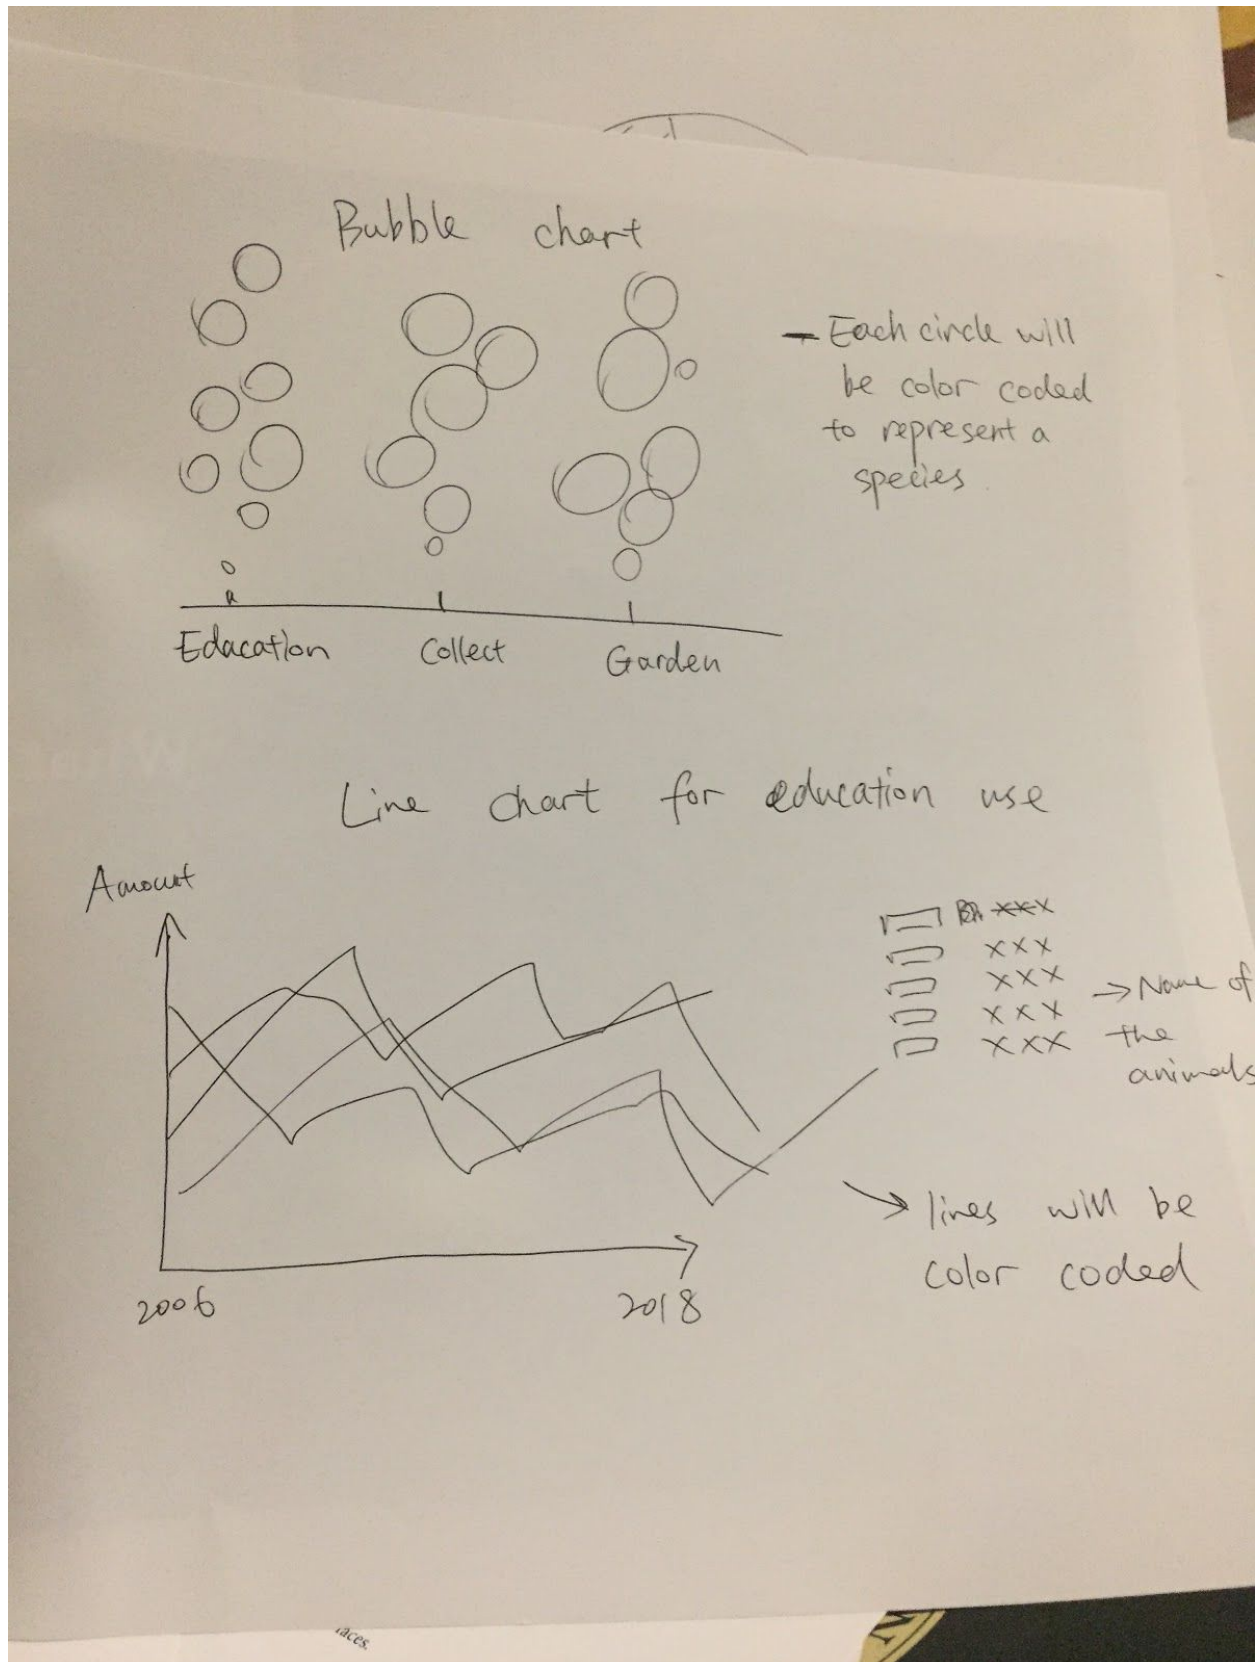 Bubble chart
- Each circle will
be color coded
to represent a
species.
Edacation Collect Garden
Line chart for education use
Amount
xxx
xxx
xxx
xxx
xxx
→ Name of
the
animals
→ lines will be
color coded
2006 2018
aces.